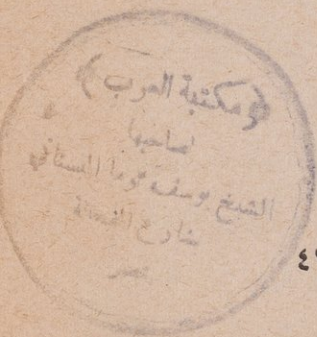 ﴿مكتبة العرب﴾
لصاحبها
الشيخ يوسف توما البستاني
شارع الفجالة
بمصر
٤٩